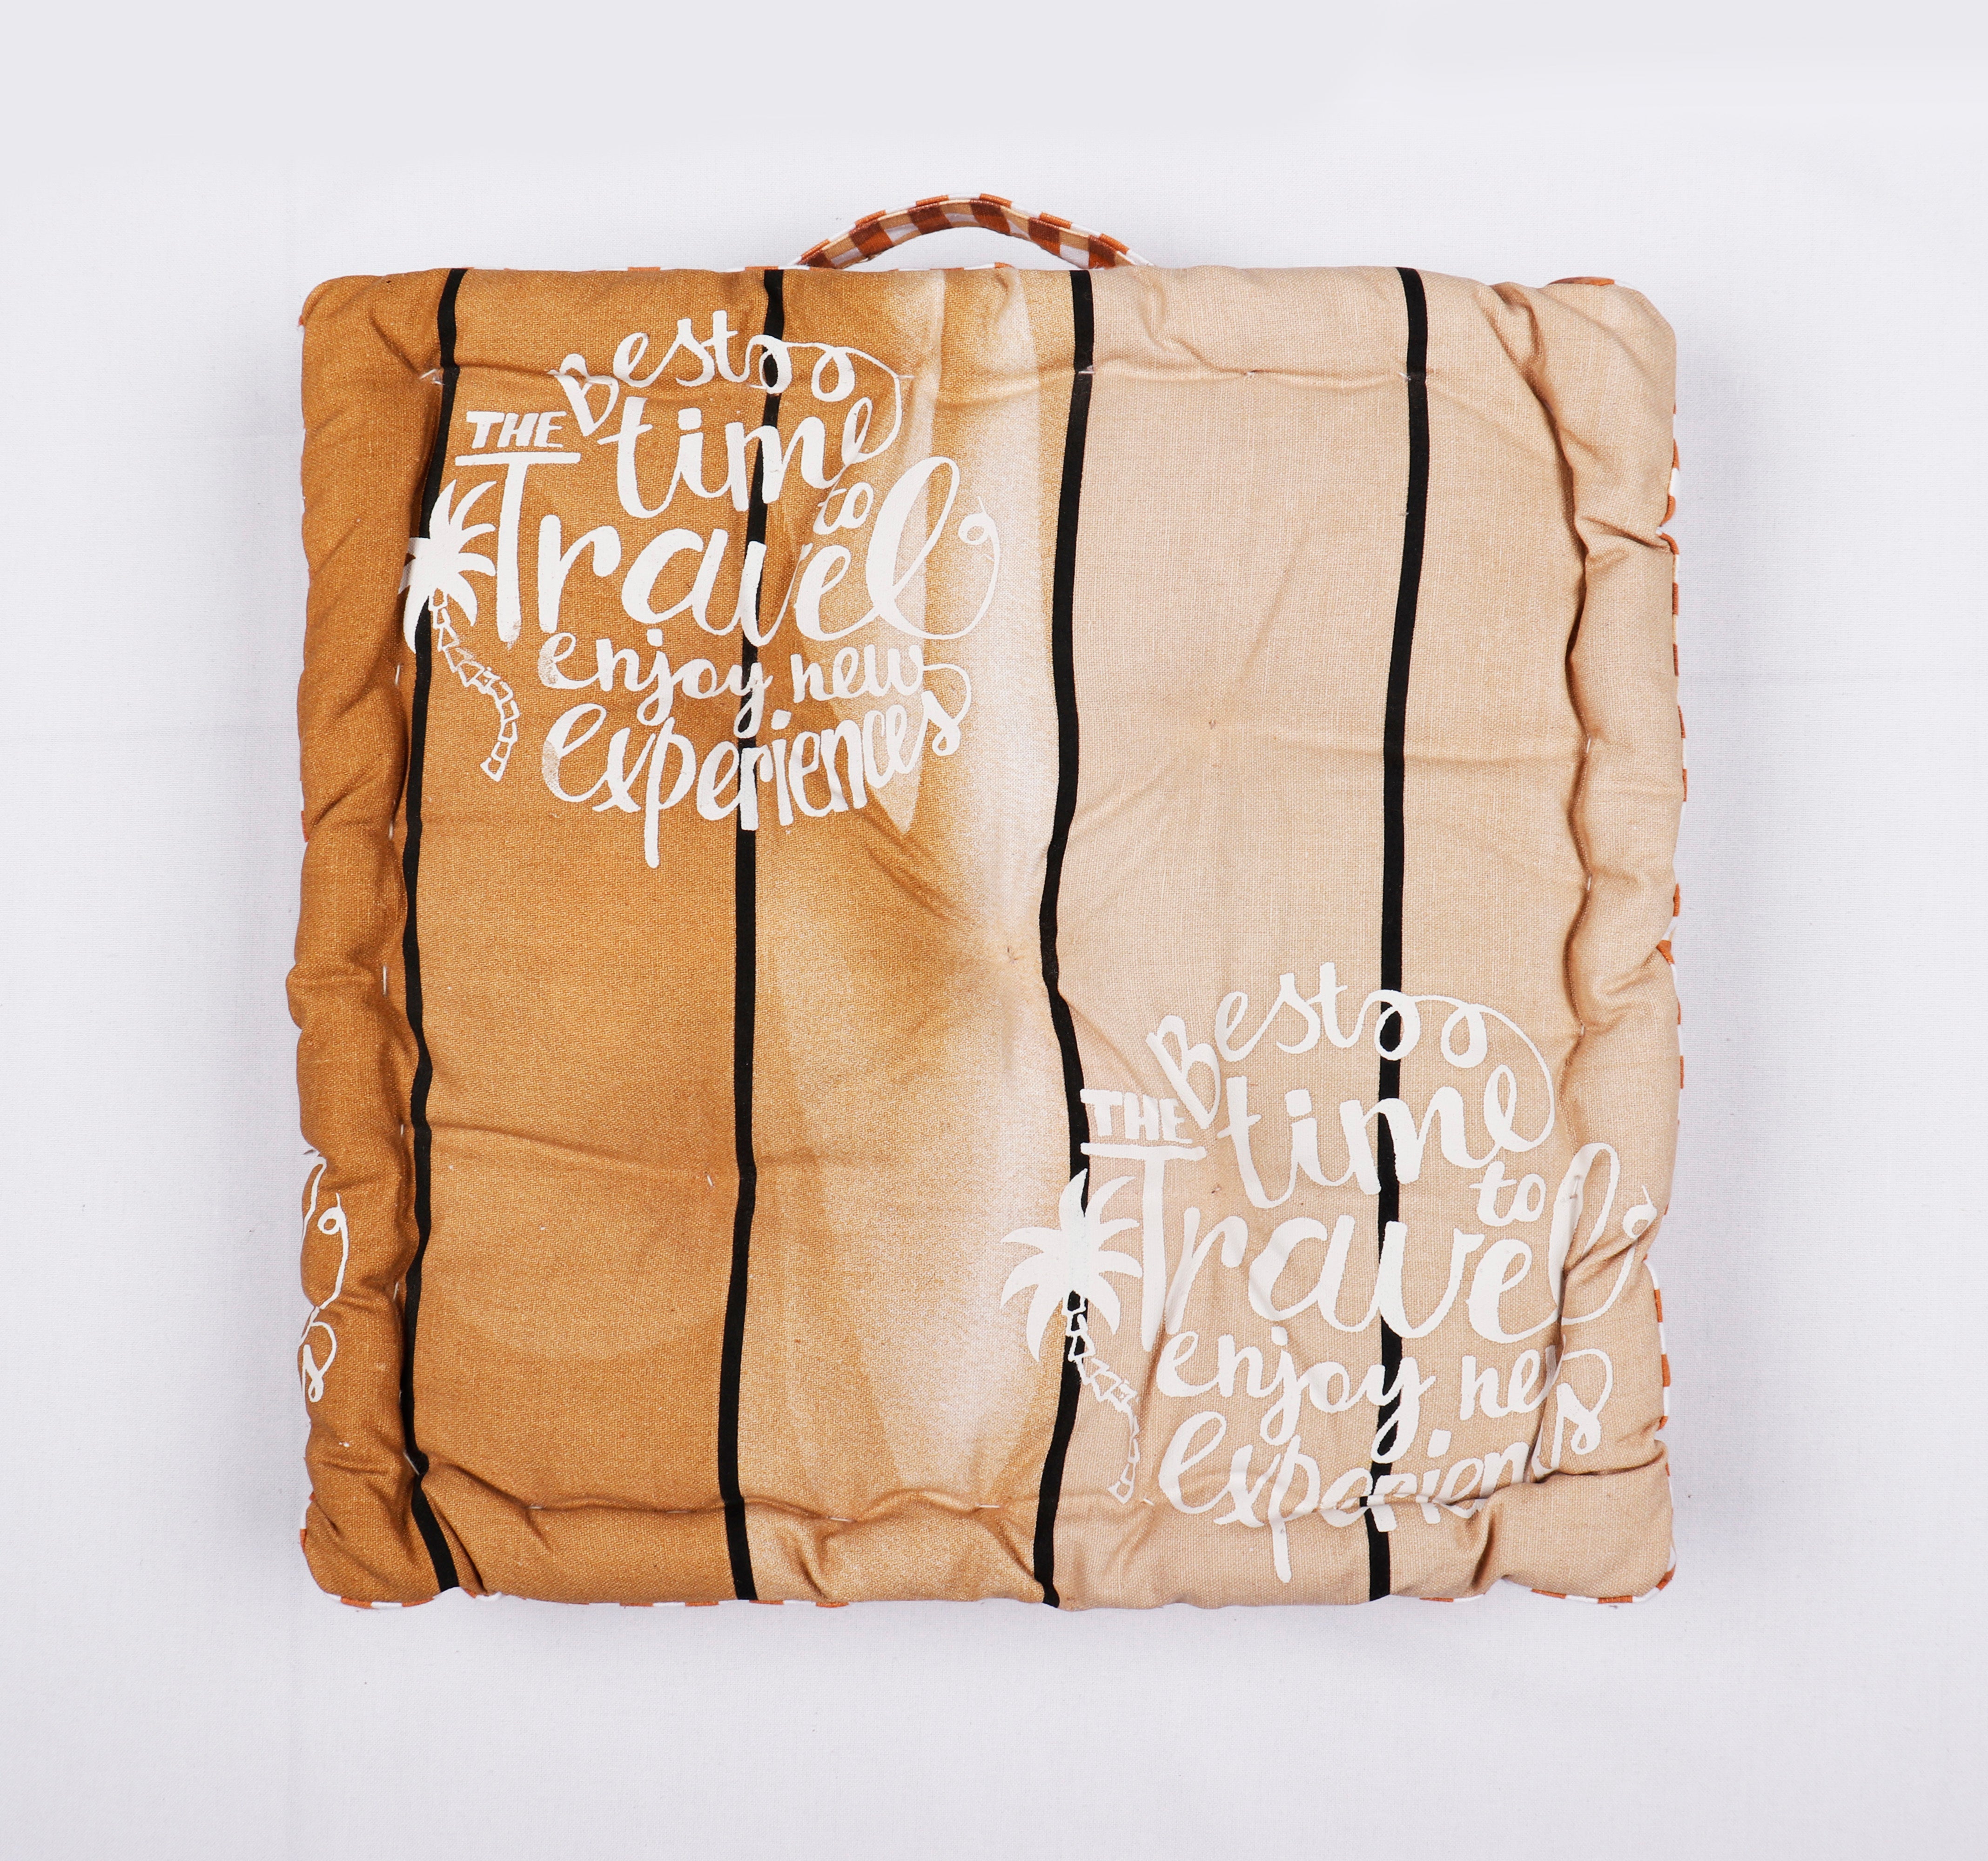 THE Best
time
to
Travel
enjoy new
experiences
THE Best
time
to
Travel
enjoy new
experien
s